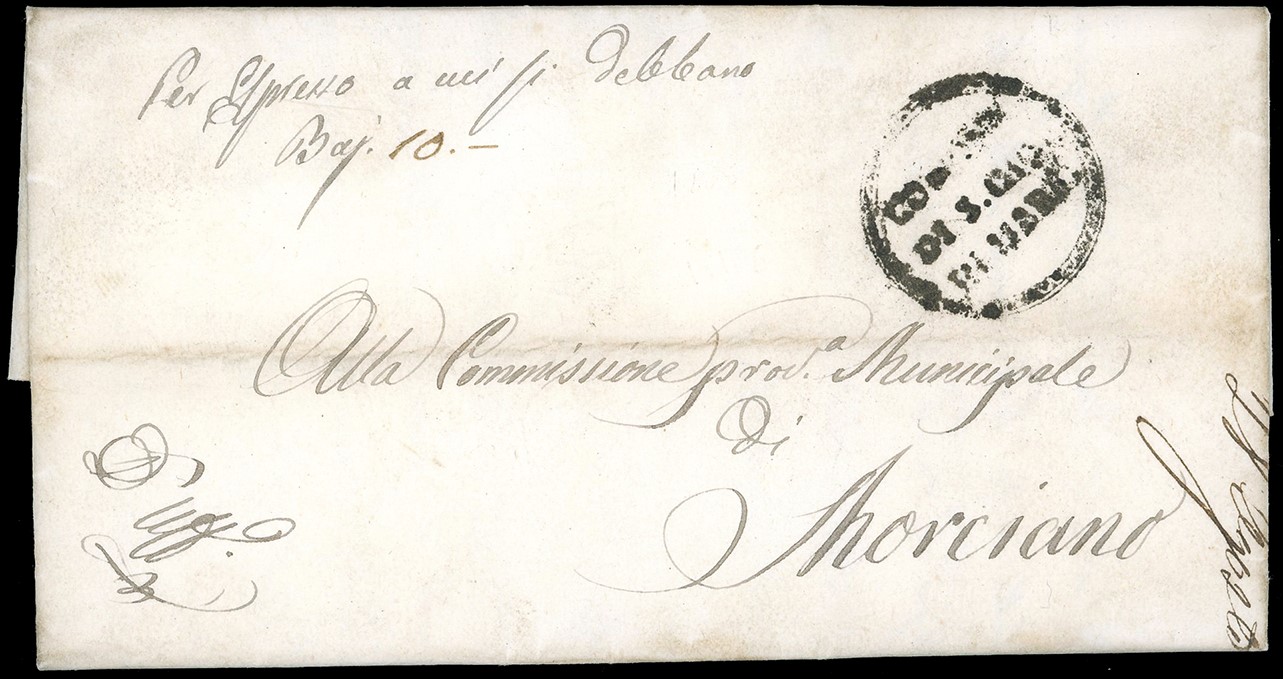 Per Espresso a cui si debbano
Baj. 10.—
DI S. GIO.
IN MARI
Alla Commissione prov.ª Municipale
di
Morciano
D'Uff.